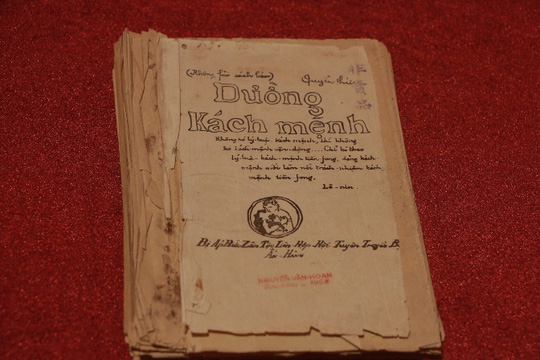 (Không fải sách bán)
非賣品
Đường
Kách mệnh
Không có lý luận kách mệnh, thì không
có kách-mệnh vận-động.... Chỉ có theo
lý-luận kách-mệnh tiền fong, đảng kách
mệnh mới làm nổi trách-nhiệm kách
mệnh tiền fong.
Lê-nin.
Bị Áp Bức Zân Tộc Liên Hợp Hội Tuyên Truyền Bộ
Ấn-Hành
NGUYỄN-VĂN-HOAN